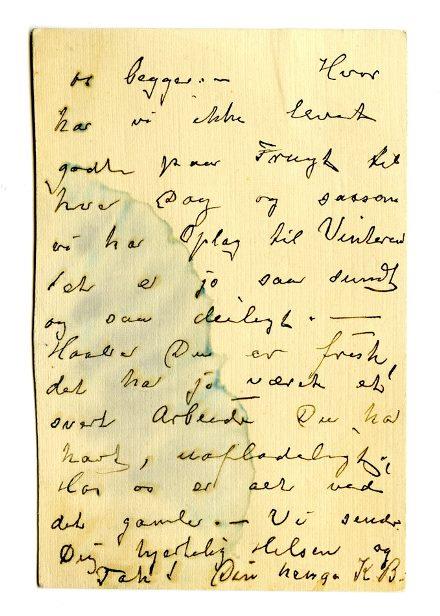 os begge. — Hvor
har vi ikke levet
godt paa Frugt til
hver Dag og saasom
vi har Oplag til Vinteren
det er jo saa sundt
og saa deiligt. —
Haaber Du er frisk,
det har jo været et
svert Arbeide Du har
havt, uafladeligt,
Hos os er alt ved
det gamle. — Vi sender
Dig hjertelig Hilsen og
Tak! Din K B.